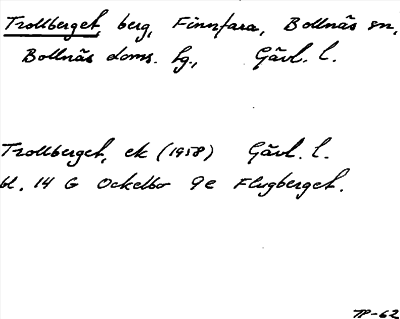 Trollberget, berg, Finnfara, Bollnäs sn,
Bollnäs doms. hg., Gävl. l.
Trollberget, ek (1958) Gävl. l.
bl. 14 G Ockelbo 9e Flugberget.
TP-62